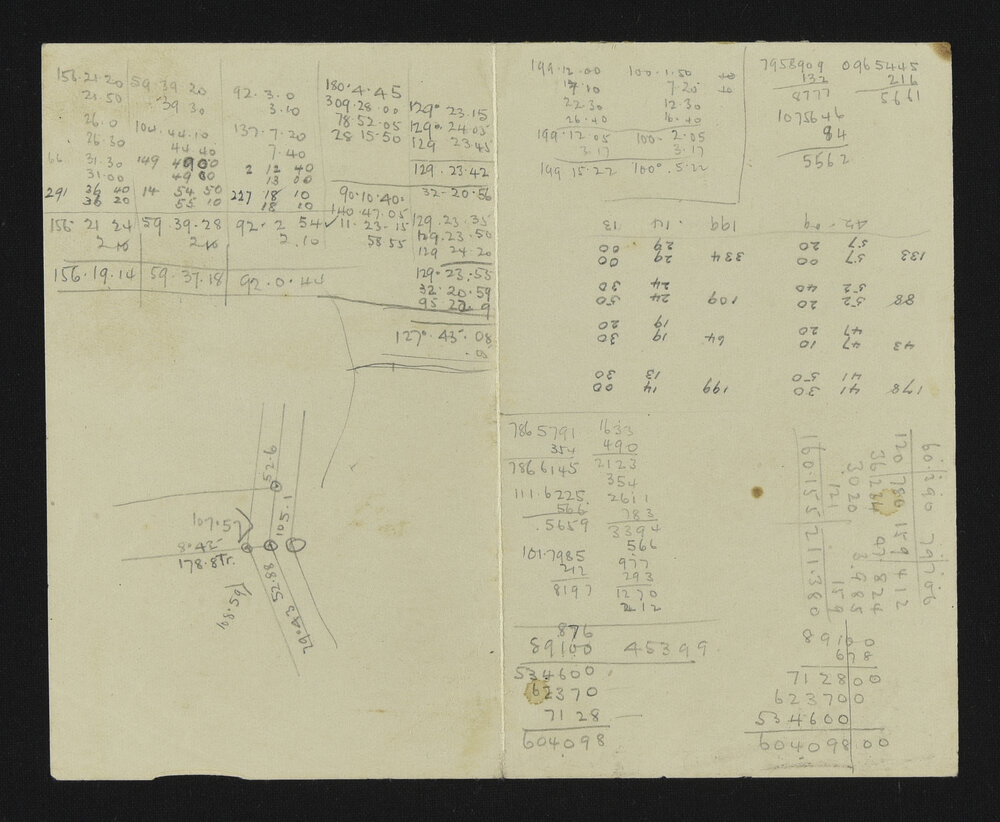 156.21.20 59.39 20 92.3.0 180.4.45
21.50 39 30 3.10 309.28.00 129° 23.15
26.0 104.44.10 137.7.20 78.52.05 129° 24.05
26.30 44 40 7.40 28 15.50 129 23.45
66 31.30 149 49 00 2 12 40 129.23.42
31.00 49 00 13 00
291 36 40 14 54 50 227 18 10 90.10.40. 32.20.56
36 20 55 10 18 10 140.47.05
156 21 24 59.39.28 92.2 54 11.23.15 129.23.35
2 10 2 10 2.10 58 55 129.23.50
129 24.20
156.19.14 59.37.18 92.0.44 129.23.55
32.20.59
95.22.9
127°.43.08
.00
52.6
105.1
107.57
8.42
178.8Tr.
52.88
79.43
108.59
199.12.00 100.1.50
17.10 7.20
22.30 12.30
26.40 16.40
199.12.05 100.2.05
3.17 3.17
199 15.22 100°.5.22
7958909 0965445
132 216
8777 5661
1075646
84
5562
13 14 199 42 09
00 29 57 20
00 29 334 57 00 133
30 24 52 40
50 24 109 52 20 88
20 19 47 20
30 19 64 47 10 43
30 13 41 50
00 14 199 41 30 178
7865791 1633
354 490
7866145 2123
354
111.6225 2611
566 783
.5659 3394
566
101.7985 977
212 293
8197 1270
212
876
89100 45399
534600
62370
7128
604098
60.290 79706
120 780 159 412
36234 97 824
3020 3.985
121 159
160.155 211.380
89100
678
712800
623700
534600
60409800